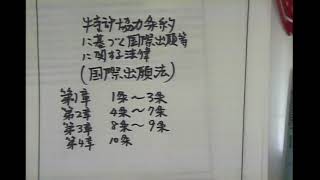 特許協力条約
に基づく国際出願等
に関する法律
(国際出願法)
第1章 1条～3条
第2章 4条～7条
第3章 8条～9条
第4章 10条